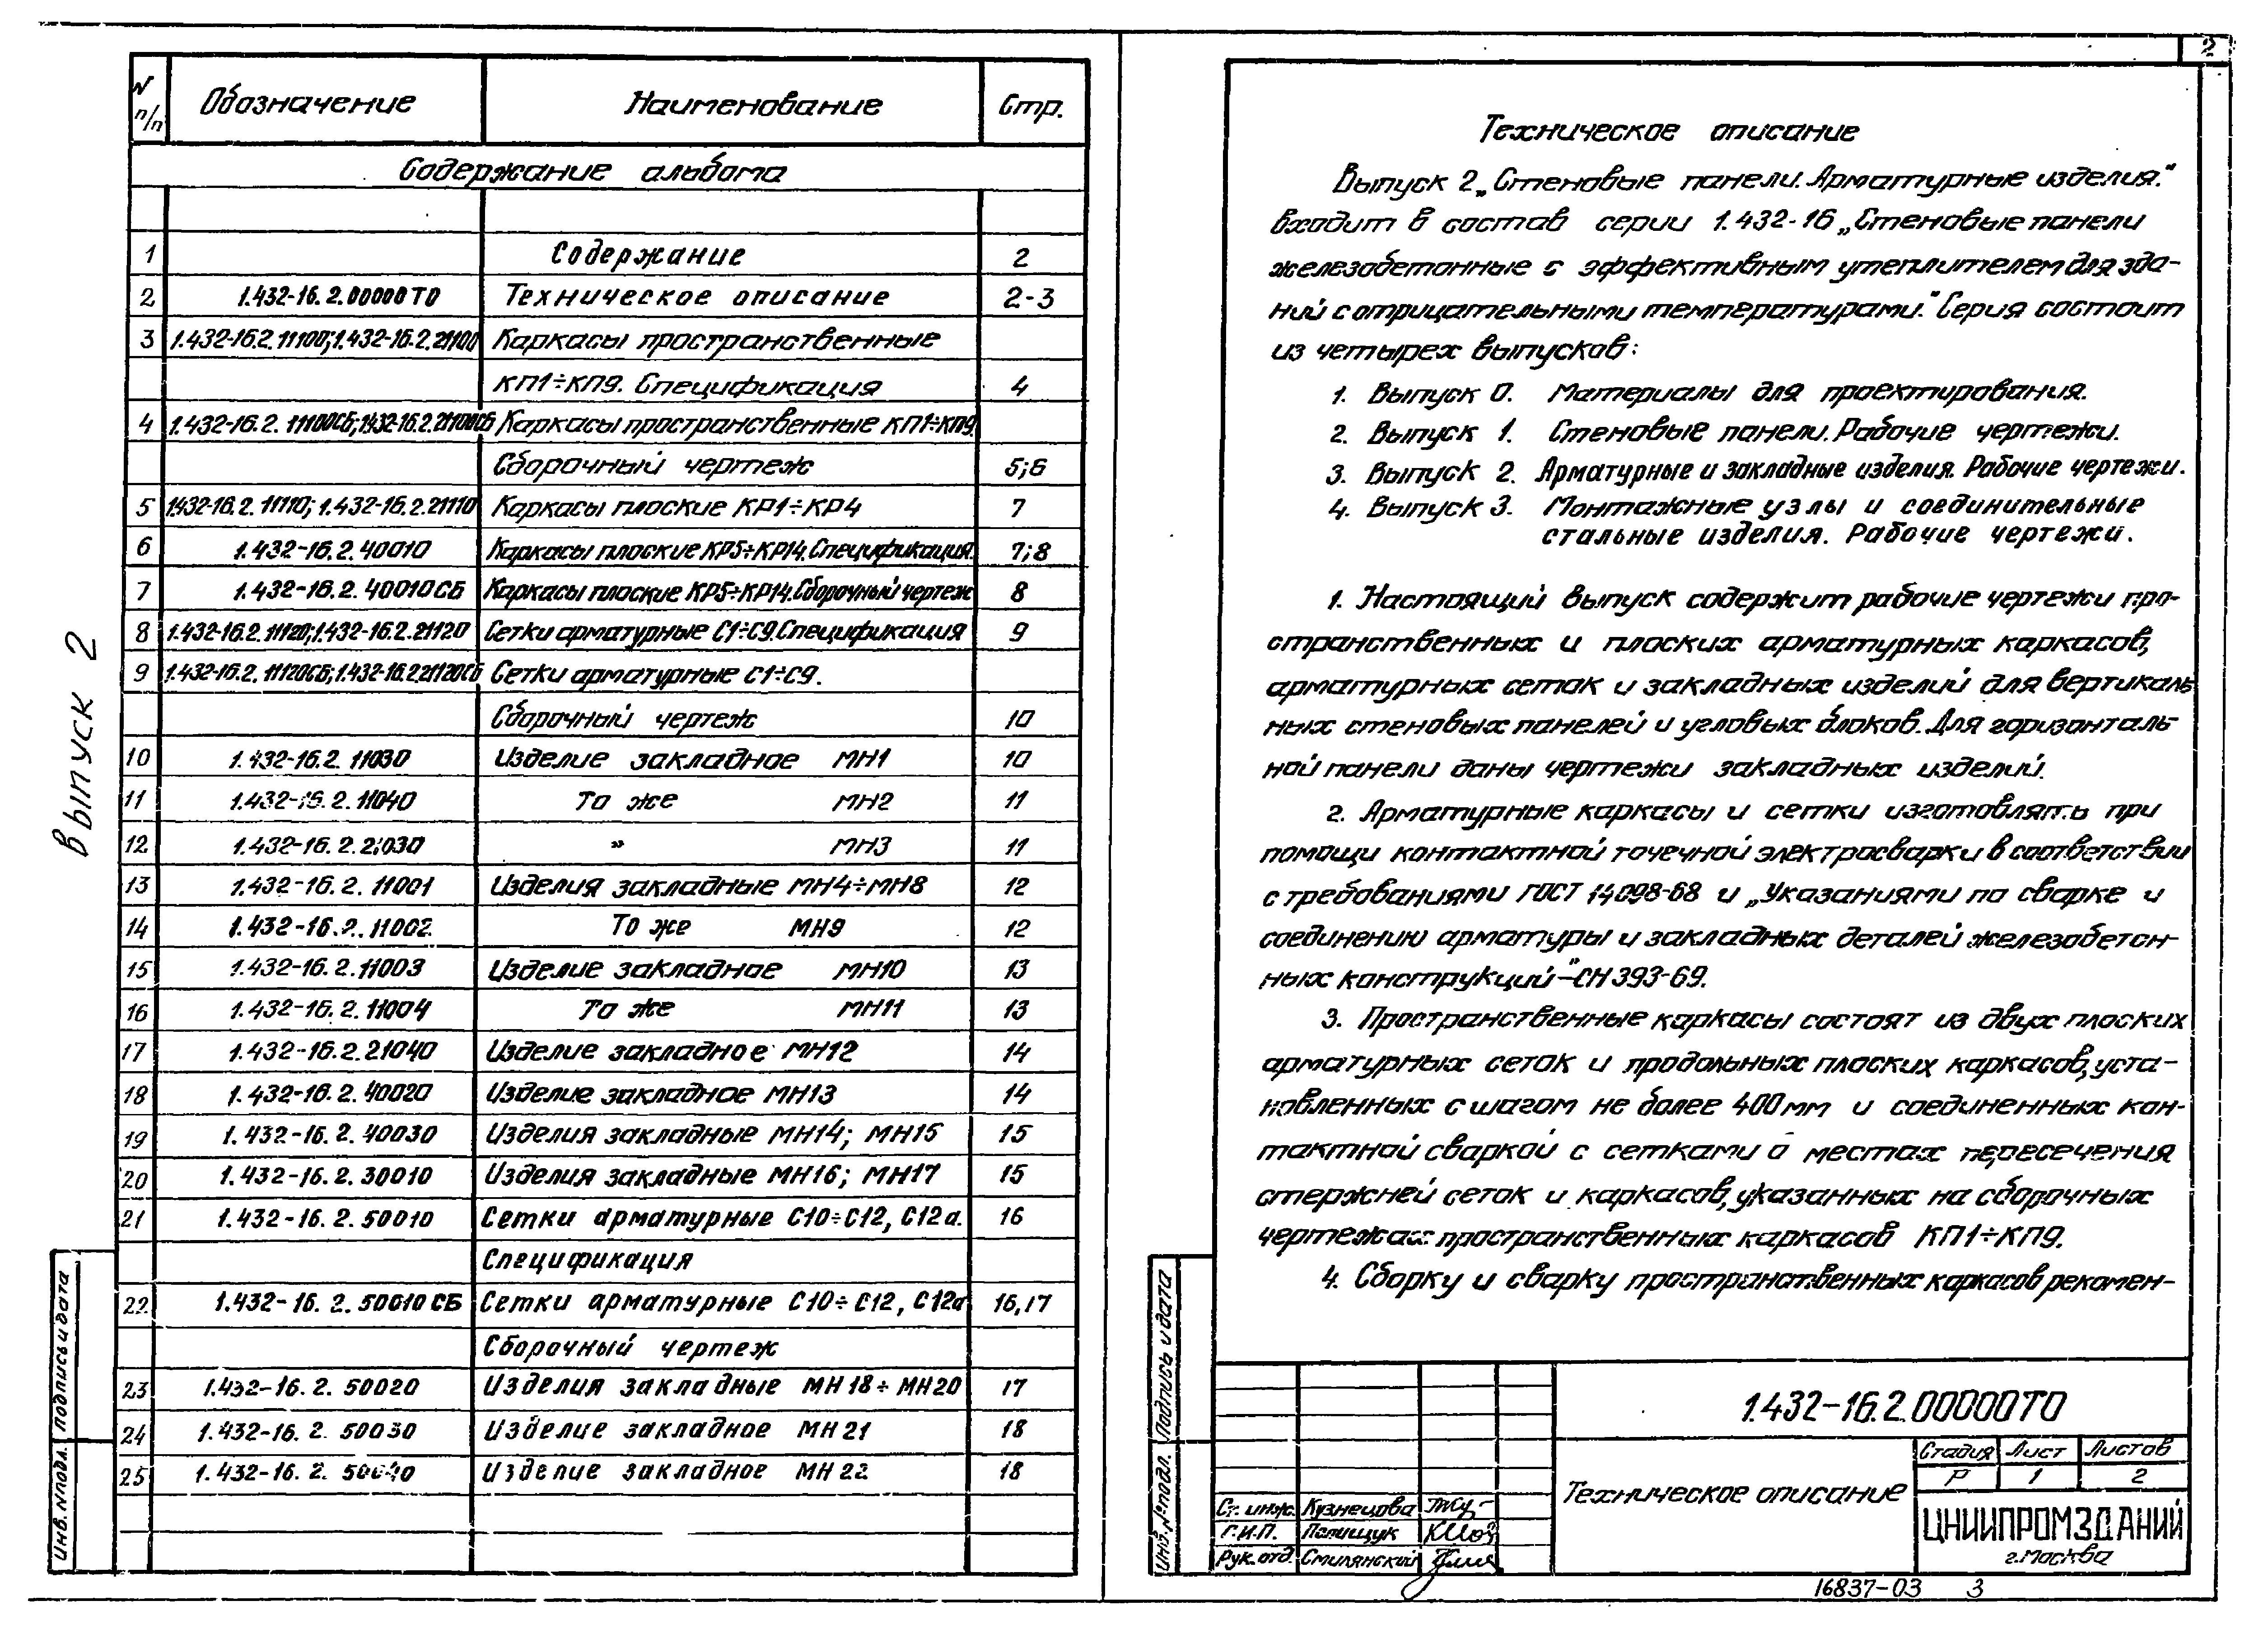 Выпуск 2
N п/п Обозначение Наименование Стр.
Содержание альбома
1 Содержание 2
2 1.432-16.2.00000ТО Техническое описание 2-3
3 1.432-16.2.11100; 1.432-16.2.21100 Каркасы пространственные
КП1÷КП9. Спецификация 4
4 1.432-16.2.11100СБ; 1.432-16.2.21100СБ Каркасы пространственные КП1÷КП9.
Сборочный чертеж 5;6
5 1.432-16.2.11110; 1.432-16.2.21110 Каркасы плоские КР1÷КР4 7
6 1.432-16.2.40010 Каркасы плоские КР5÷КР14. Спецификация. 7;8
7 1.432-16.2.40010СБ Каркасы плоские КР5÷КР14. Сборочный чертеж 8
8 1.432-16.2.11120; 1.432-16.2.21120 Сетки арматурные С1÷С9. Спецификация 9
9 1.432-16.2.11120СБ; 1.432-16.2.21120СБ Сетки арматурные С1÷С9.
Сборочный чертеж 10
10 1.432-16.2.11030 Изделие закладное МН1 10
11 1.432-16.2.11040 То же МН2 11
12 1.432-16.2.21030 " МН3 11
13 1.432-16.2.11001 Изделия закладные МН4÷МН8 12
14 1.432-16.2.11002 То же МН9 12
15 1.432-16.2.11003 Изделие закладное МН10 13
16 1.432-16.2.11004 То же МН11 13
17 1.432-16.2.21040 Изделие закладное МН12 14
18 1.432-16.2.40020 Изделие закладное МН13 14
19 1.432-16.2.40030 Изделия закладные МН14; МН15 15
20 1.432-16.2.30010 Изделия закладные МН16; МН17 15
21 1.432-16.2.50010 Сетки арматурные С10÷С12, С12а. 16
Спецификация
22 1.432-16.2.50010СБ Сетки арматурные С10÷С12, С12а 16,17
Сборочный чертеж
23 1.432-16.2.50020 Изделия закладные МН18÷МН20 17
24 1.432-16.2.50030 Изделие закладное МН21 18
25 1.432-16.2.50040 Изделие закладное МН22 18
Инв. N подл. Подпись и дата
2
Техническое описание
Выпуск 2 „Стеновые панели. Арматурные изделия."
входит в состав серии 1.432-16 „Стеновые панели
железобетонные с эффективным утеплителем для зда-
ний с отрицательными температурами." Серия состоит
из четырех выпусков:
1. Выпуск 0. Материалы для проектирования.
2. Выпуск 1. Стеновые панели. Рабочие чертежи.
3. Выпуск 2. Арматурные и закладные изделия. Рабочие чертежи.
4. Выпуск 3. Монтажные узлы и соединительные
стальные изделия. Рабочие чертежи.
1. Настоящий выпуск содержит рабочие чертежи про-
странственных и плоских арматурных каркасов,
арматурных сеток и закладных изделий для вертикаль
ных стеновых панелей и угловых блоков. Для горизонталь-
ной панели даны чертежи закладных изделий.
2. Арматурные каркасы и сетки изготовлять при
помощи контактной точечной электросварки в соответствии
с требованиями ГОСТ 14098-68 и „Указаниями по сварке и
соединению арматуры и закладных деталей железобетон-
ных конструкций"-СН 393-69.
3. Пространственные каркасы состоят из двух плоских
арматурных сеток и продольных плоских каркасов, уста-
новленных с шагом не более 400мм и соединенных кон-
тактной сваркой с сетками в местах пересечения
стержней сеток и каркасов, указанных на сборочных
чертежах пространственных каркасов КП1÷КП9.
4. Сборку и сварку пространственных каркасов рекомен-
Инв. № подл. Подпись и дата
1.432-16.2.00000ТО
Техническое описание
Стадия Лист Листов
Р 1 2
Ст. инж. Кузнецова
Г.И.П. Палищук
Рук. отд. Смилянский
ЦНИИПРОМЗДАНИЙ
г. Москва
16837-03 3